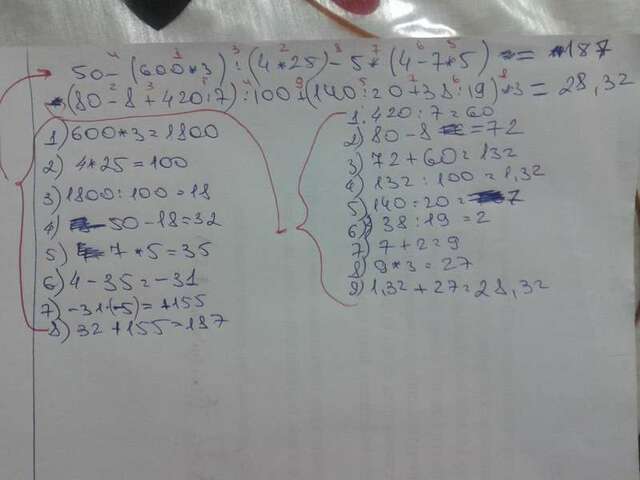 50-(600*3):(4*25)-5*(4-7*5)=187
(80-8+420:7):100+(140:20+38:19)*3=28,32
1) 600*3=1800
2) 4*25=100
3) 1800:100=18
4) 50-18=32
5) 7*5=35
6) 4-35=-31
7) -31·(-5)=+155
8) 32+155=187
1. 420:7=60
2) 80-8=72
3) 72+60=132
4) 132:100=1,32
5) 140:20=7
6) 38:19=2
7) 7+2=9
8) 9*3=27
9) 1,32+27=28,32